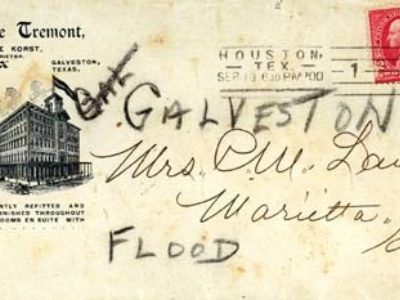 e Tremont,
E KORST,
GALVESTON,
TEXAS.
HOUSTON,
TEX.
SEP 13 6 30 PM '00
1
GAL
GALVESTON
Mrs. P. M. Da
Marietta
FLOOD
NTLY REFITTED AND
RNISHED THROUGHOUT
OOMS EN SUITE WITH